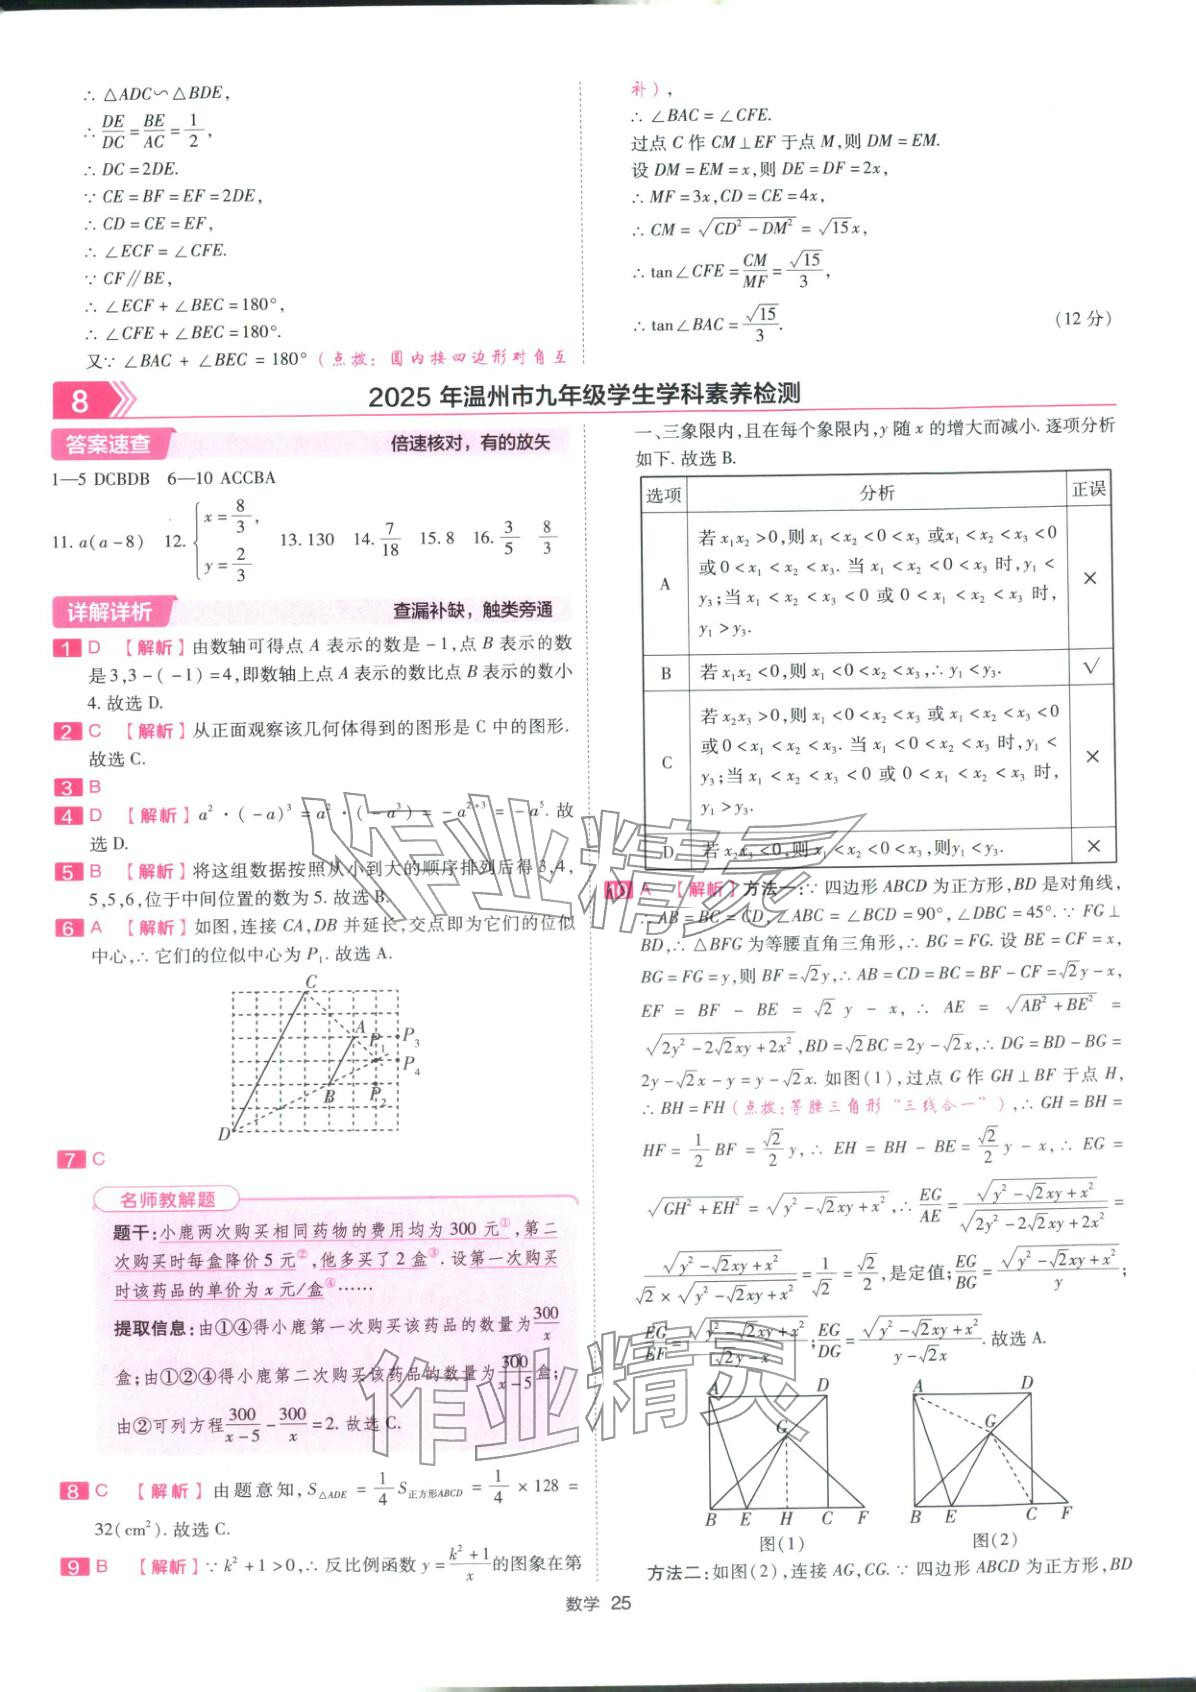 ∴ △ADC∽△BDE,
∴ DE/DC = BE/AC = 1/2,
∴ DC = 2DE.
∵ CE = BF = EF = 2DE,
∴ CD = CE = EF,
∴ ∠ECF = ∠CFE.
∵ CF∥BE,
∴ ∠ECF + ∠BEC = 180°,
∴ ∠CFE + ∠BEC = 180°.
又∵ ∠BAC + ∠BEC = 180°(点拨:圆内接四边形对角互
补),
∴ ∠BAC = ∠CFE.
过点 C 作 CM⊥EF 于点 M,则 DM = EM.
设 DM = EM = x,则 DE = DF = 2x,
∴ MF = 3x, CD = CE = 4x,
∴ CM = √(CD² − DM²) = √15x,
∴ tan∠CFE = CM/MF = √15/3,
∴ tan∠BAC = √15/3. (12 分)
8 2025 年温州市九年级学生学科素养检测
答案速查 倍速核对，有的放矢
1—5 DCBDB 6—10 ACCBA
11. a(a−8) 12. { x = 8/3, y = 2/3 13. 130 14. 7/18 15. 8 16. 3/5 8/3
详解详析 查漏补缺，触类旁通
1 D 【解析】由数轴可得点 A 表示的数是 −1,点 B 表示的数
是 3,3−(−1)=4,即数轴上点 A 表示的数比点 B 表示的数小
4. 故选 D.
2 C 【解析】从正面观察该几何体得到的图形是 C 中的图形.
故选 C.
3 B
4 D 【解析】a²·(−a)³ = a²·(−a³) = −a²⁺³ = −a⁵. 故
选 D.
5 B 【解析】将这组数据按照从小到大的顺序排列后得 3,4,
5,5,6,位于中间位置的数为 5. 故选 B.
6 A 【解析】如图,连接 CA,DB 并延长,交点即为它们的位似
中心,∴ 它们的位似中心为 P₁. 故选 A.
C
A
P₁
P₃
P₄
B
P₂
D
7 C
名师教解题
题干:小鹿两次购买相同药物的费用均为 300 元①,第二
次购买时每盒降价 5 元②,他多买了 2 盒③. 设第一次购买
时该药品的单价为 x 元/盒④……
提取信息:由①④得小鹿第一次购买该药品的数量为 300/x
盒;由①②④得小鹿第二次购买该药品的数量为 300/(x−5) 盒;
由②可列方程 300/(x−5) − 300/x = 2. 故选 C.
8 C 【解析】由题意知, S△ADE = 1/4 S正方形ABCD = 1/4 × 128 =
32(cm²). 故选 C.
9 B 【解析】∵ k²+1>0,∴ 反比例函数 y = (k²+1)/x 的图象在第
一、三象限内,且在每个象限内,y 随 x 的增大而减小. 逐项分析
如下. 故选 B.
选项 分析 正误
A 若 x₁x₂>0,则 x₁<x₂<0<x₃ 或 x₁<x₂<x₃<0
或 0<x₁<x₂<x₃. 当 x₁<x₂<0<x₃ 时,y₁<
y₃;当 x₁<x₂<x₃<0 或 0<x₁<x₂<x₃ 时,
y₁>y₃. ×
B 若 x₁x₂<0,则 x₁<0<x₂<x₃,∴ y₁<y₃. √
C 若 x₂x₃>0,则 x₁<0<x₂<x₃ 或 x₁<x₂<x₃<0
或 0<x₁<x₂<x₃. 当 x₁<0<x₂<x₃ 时,y₁<
y₃;当 x₁<x₂<x₃<0 或 0<x₁<x₂<x₃ 时,
y₁>y₃. ×
D 若 x₂x₃<0,则 x₁<x₂<0<x₃,则y₁<y₃. ×
10 A 【解析】方法一:∵ 四边形 ABCD 为正方形,BD 是对角线,
∴ AB = BC = CD,∠ABC = ∠BCD = 90°,∠DBC = 45°. ∵ FG⊥
BD,∴ △BFG 为等腰直角三角形,∴ BG = FG. 设 BE = CF = x,
BG = FG = y,则 BF = √2y,∴ AB = CD = BC = BF − CF = √2y − x,
EF = BF − BE = √2y − x,∴ AE = √(AB² + BE²) =
√(2y² − 2√2xy + 2x²),BD = √2BC = 2y − √2x,∴ DG = BD − BG =
2y − √2x − y = y − √2x. 如图(1),过点 G 作 GH⊥BF 于点 H,
∴ BH = FH(点拨:等腰三角形“三线合一”),∴ GH = BH =
HF = 1/2 BF = √2/2 y,∴ EH = BH − BE = √2/2 y − x,∴ EG =
√(GH² + EH²) = √(y² − √2xy + x²),∴ EG/AE = √(y² − √2xy + x²)/√(2y² − 2√2xy + 2x²) =
√(y² − √2xy + x²)/(√2 × √(y² − √2xy + x²)) = 1/√2 = √2/2,是定值; EG/BG = √(y² − √2xy + x²)/y;
EG/EF = √(y² − √2xy + x²)/(√2y − x); EG/DG = √(y² − √2xy + x²)/(y − √2x). 故选 A.
A D G B E H C F
图(1)
A D G B E C F
图(2)
方法二:如图(2),连接 AG,CG. ∵ 四边形 ABCD 为正方形,BD
数学 25
作业精灵
作业精灵